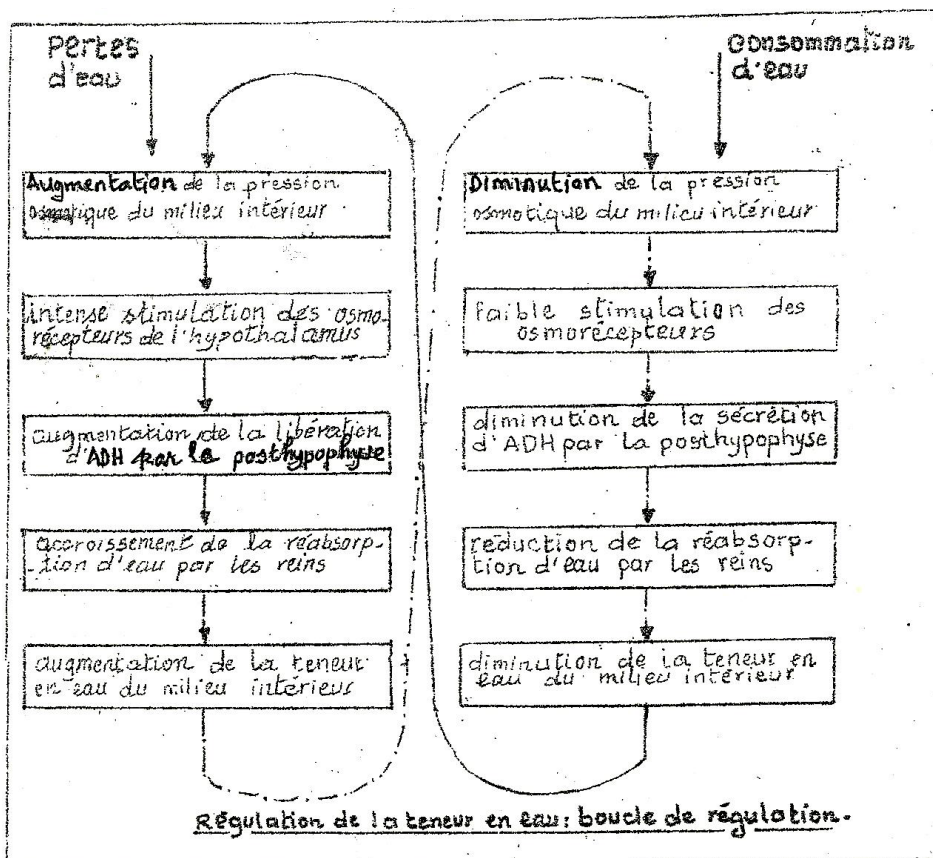 Pertes
d'eau
Consommation
d'eau
Augmentation de la pression
osmotique du milieu intérieur
intense stimulation des osmo-
récepteurs de l'hypothalamus
augmentation de la libération
d'ADH par la posthypophyse
accroissement de la réabsorp-
-tion d'eau par les reins
augmentation de la teneur
en eau du milieu intérieur
Diminution de la pression
osmotique du milieu intérieur
faible stimulation des
osmorécepteurs
diminution de la sécrétion
d'ADH par la posthypophyse
réduction de la réabsorp-
tion d'eau par les reins
diminution de la teneur en
eau du milieu intérieur
Régulation de la teneur en eau: boucle de régulation.